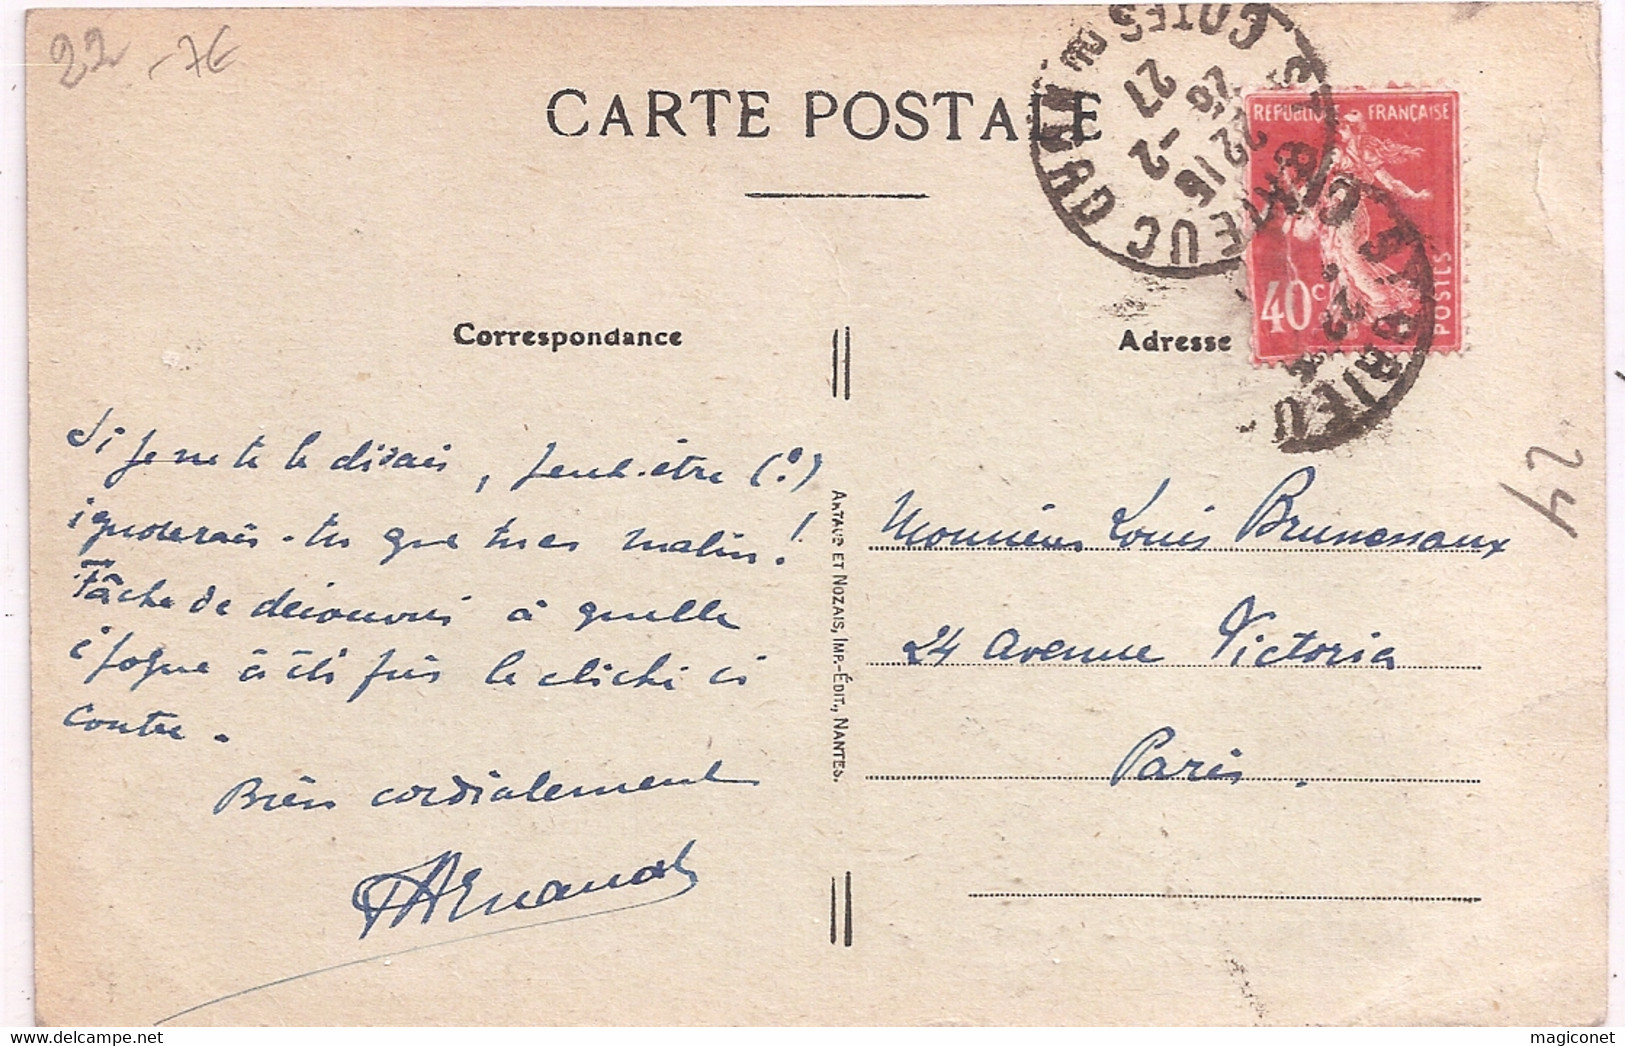 22 -7€
CARTE POSTALE
REPUBLIQUE FRANÇAISE
40c
POSTES
ST BRIEUC
27 -2
22 15
26
COTES DU NORD
Correspondance
Adresse
Si je ne te le disais, peut-être (?)
ignorerais-tu que tu es malin!
Tâche de découvrir à quelle
époque a été pris le cliché ci
contre.
Bien cordialement
Arnaud
ARTAUD ET NOZAIS, IMP.-ÉDIT., NANTES.
Monsieur Louis Brunessaux
24 Avenue Victoria
Paris.
24
magiconet